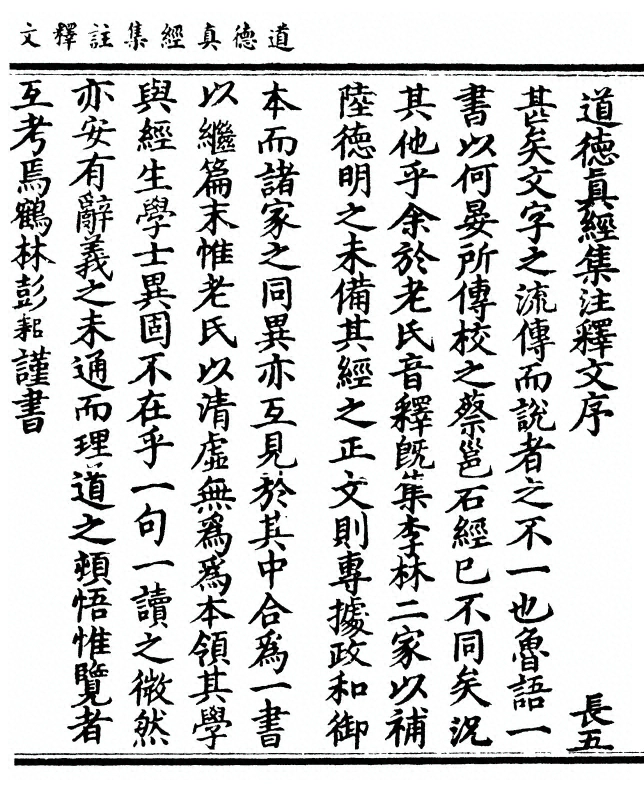 道德真經集註釋文
道德眞經集注釋文序 長五
甚矣文字之流傳而說者之不一也魯語一
書以何晏所傳校之蔡邕石經巳不同矣況
其他乎余於老氏音釋旣集李林二家以補
陸德明之未備其經之正文則專據政和御
本而諸家之同異亦互見於其中合爲一書
以繼篇末惟老氏以清虛無爲爲本領其學
與經生學士異固不在乎一句一讀之微然
亦安有辭義之未通而理道之頓悟惟覽者
互考焉鶴林彭耜謹書